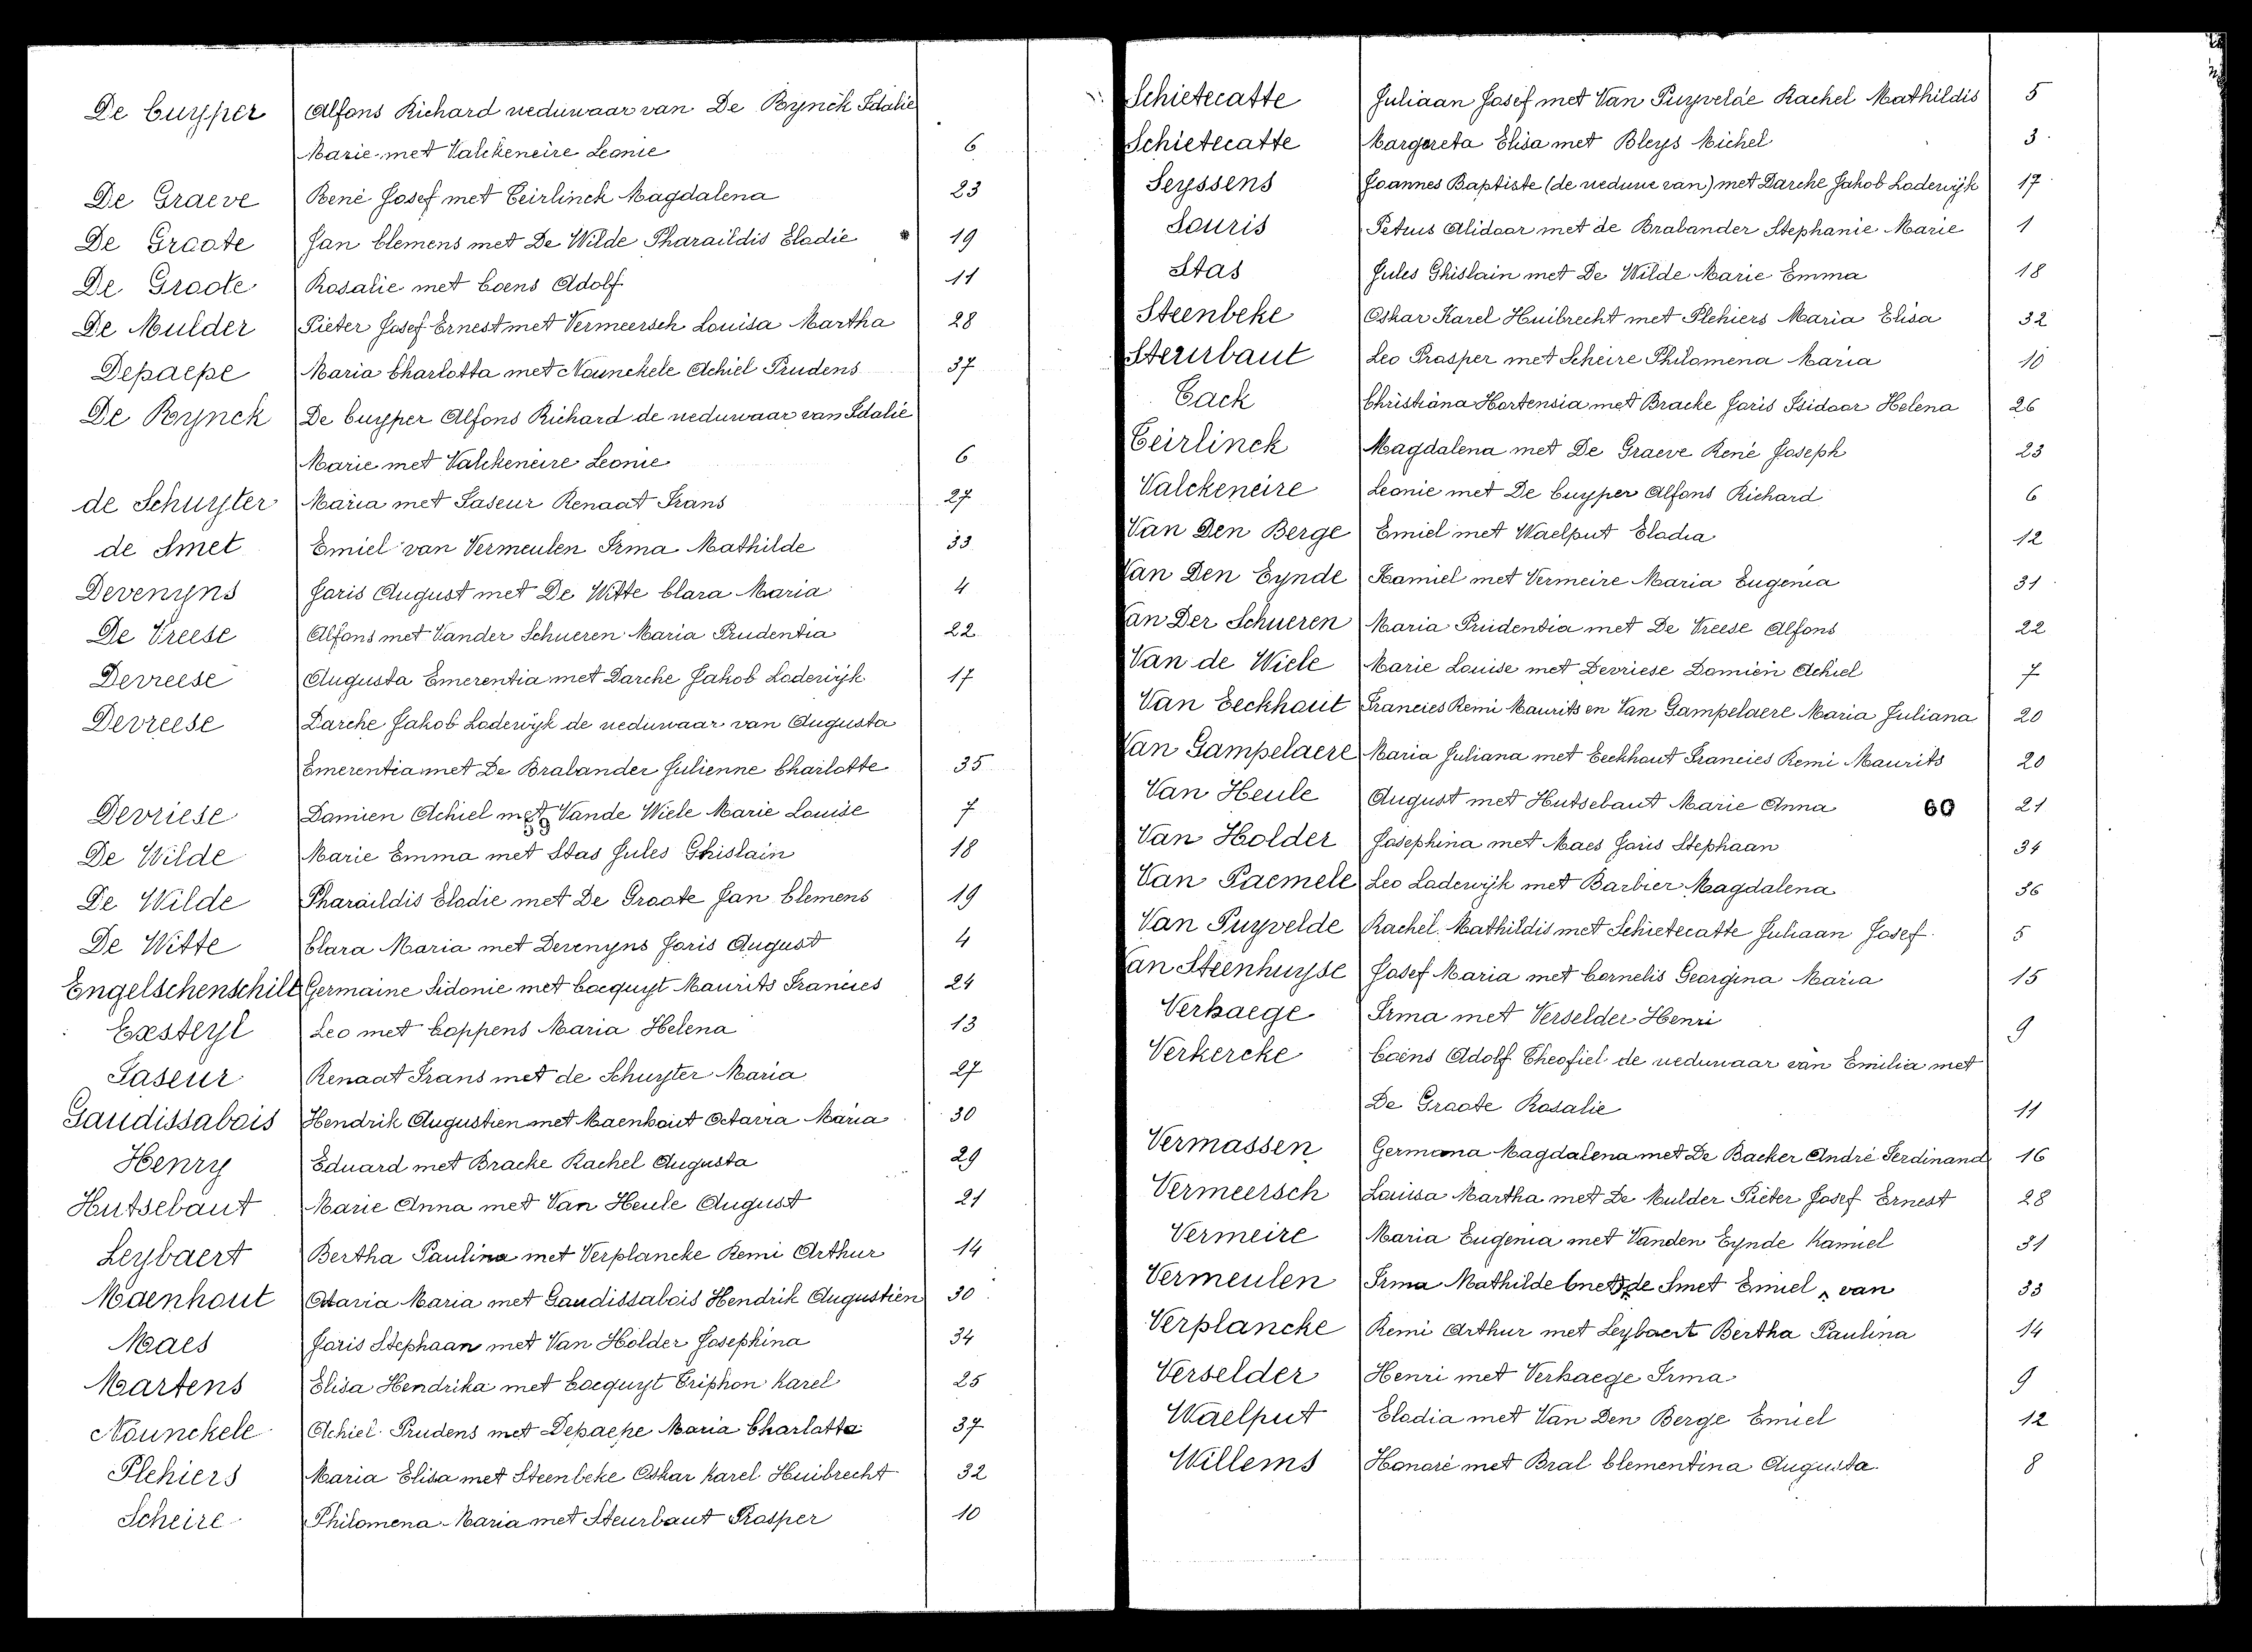 De Cuyper Alfons Richard weduwaar van De Rynck Idalie
Marie met Valckeneire Leonie 6
De Graeve René Josef met Ceirlinck Magdalena 23
De Groote Jan Clemens met De Wilde Pharaildis Elodie 19
De Groote Rosalie met Coens Adolf 11
De Mulder Pieter Josef Ernest met Vermeersch Louisa Martha 28
Depaepe Maria Charlotta met Nounckele Achiel Prudens 37
De Rynck De Cuyper Alfons Richard de weduwaar van Idalie
Marie met Valckeneire Leonie 6
de Schuyter Maria met Faseur Renaat Frans 27
de Smet Emiel van Vermeulen Irma Mathilde 33
Devenyns Joris August met De Witte Clara Maria 4
De Vreese Alfons met Vander Schueren Maria Prudentia 22
Devreese Augusta Emerentia met Darche Jakob Lodewijk 17
Devreese Darche Jakob Lodewijk de weduwaar van Augusta
Emerentia met De Brabander Julienne Charlotte 35
Devriese Damien Achiel met Vande Wiele Marie Louise 7
De Wilde Marie Emma met Stas Jules Ghislain 18
De Wilde Pharaildis Elodie met De Groote Jan Clemens 19
De Witte Clara Maria met Devenyns Joris August 4
Engelschenschilt Germaine Sidonie met Cocquyt Maurits Francies 24
Exsteyl Leo met Coppens Maria Helena 13
Faseur Renaat Frans met de Schuyter Maria 27
Gaudissabois Hendrik Augustien met Maenhout Octavia Maria 30
Henry Eduard met Bracke Rachel Augusta 29
Hutsebaut Marie Anna met Van Heule August 21
Leybaert Bertha Paulina met Verplancke Remi Arthur 14
Maenhout Octavia Maria met Gaudissabois Hendrik Augustien 30
Maes Joris Stephaan met Van Holder Josephina 34
Martens Elisa Hendrika met Cocquyt Triphon Karel 25
Nounckele Achiel Prudens met Depaepe Maria Charlotta 37
Plehiers Maria Elisa met Steenbeke Oskar Karel Huibrecht 32
Scheire Philomena Maria met Steurbaut Prosper 10
Schietecatte Juliaan Josef met Van Puyvelde Rachel Mathildis 5
Schietecatte Margareta Elisa met Bleys Michel 3
Seyssens Joannes Baptiste (de weduwe van) met Darche Jakob Lodewijk 17
Souris Petrus Alidoor met de Brabander Stephanie Marie 1
Stas Jules Ghislain met De Wilde Marie Emma 18
Steenbeke Oskar Karel Huibrecht met Plehiers Maria Elisa 32
Steurbaut Leo Prosper met Scheire Philomena Maria 10
Tack Christiana Hortensia met Bracke Joris Isidoor Helena 26
Teirlinck Magdalena met De Graeve René Joseph 23
Valckeneire Leonie met De Cuyper Alfons Richard 6
Van Den Berge Emiel met Waelput Elodia 12
Van Den Eynde Kamiel met Vermeire Maria Eugenia 31
Van Der Schueren Maria Prudentia met De Vreese Alfons 22
Van de Wiele Marie Louise met Devriese Damien Achiel 7
Van Eeckhout Francies Remi Maurits en Van Gampelaere Maria Juliana 20
Van Gampelaere Maria Juliana met Eeckhout Francies Remi Maurits 20
Van Heule August met Hutsebaut Marie Anna 60 21
Van Holder Josephina met Maes Joris Stephaan 34
Van Paemele Leo Lodewijk met Barbier Magdalena 36
Van Puyvelde Rachel Mathildis met Schietecatte Juliaan Josef 5
Van Steenhuyse Josef Maria met Cornelis Georgina Maria 15
Verhaege Irma met Verselder Henri 9
Verkercke Coens Adolf Theofiel de weduwaar van Emilia met
De Groote Rosalie 11
Vermassen Germana Magdalena met De Backer André Ferdinand 16
Vermeersch Louisa Martha met De Mulder Pieter Josef Ernest 28
Vermeire Maria Eugenia met Vanden Eynde Kamiel 31
Vermeulen Irma Mathilde (met) de Smet Emiel van 33
Verplancke Remi Arthur met Leybaert Bertha Paulina 14
Verselder Henri met Verhaege Irma 9
Waelput Elodia met Van Den Berge Emiel 12
Willems Honoré met Bral Clementina Augusta 8